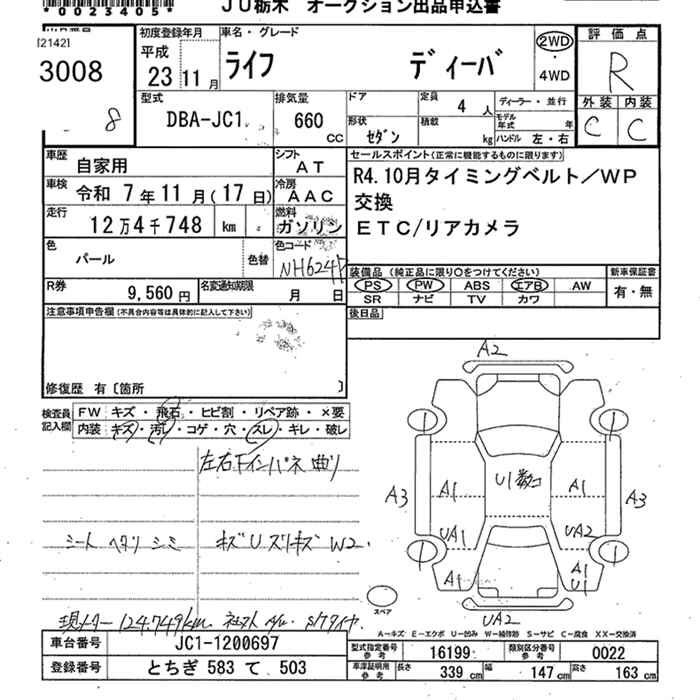 *0023405*
JU栃木 オークション出品申込書
121421
3008
8
初度登録年月
平成
23 11 月
車名・グレード
ライフ ディーバ
2WD
・
4WD
評価点
R
外装 内装
C C
型式
DBA-JC1
排気量
660
CC
ドア
定員
4 人
ディーラー・並行
形状
セダン
積載
kg
モデル年式 年
ハンドル 左・右
車歴
自家用
シフト
AT
セールスポイント(正常に機能するものに限ります)
R4.10月タイミングベルト/WP
交換
ETC/リアカメラ
車検
令和 7年11月(17日)
冷房
AAC
走行
12万4千748 km
燃料
ガソリン
色
パール
色替
色コード
NH624P
R券
9,560 円
名変通知期限
月 日
装備品 (純正品に限り○をつけてください)
PS PW ABS エアB AW
SR ナビ TV カワ
新車保証書
有・無
後日品
注意事項申告欄(不具合内容等は具体的に記入して下さい)
修復歴 有〔箇所 〕
検査員記入欄
FW キズ・飛石・ヒビ割・リペア跡・×要
内装 キズ・汚レ・コゲ・穴・スレ・キレ・破レ
左右下インパネ曲り
シート ヘタリ シミ
キズUズリキズ W2
現メーター 124.749km
A2
U1数コ
A3
A1
A1
A3
UA1
UA2
A1
A1
U1
UA2
スペア
A−キズ E−エクボ U−凹み W−補修跡 S−サビ C−腐食 XX−交換済
車台番号
JC1-1200697
登録番号
とちぎ 583 て 503
型式指定番号
参考
16199
類別区分番号
参考
0022
車庫証明用
参考
長さ 339 cm
幅 147 cm
高さ 163 cm